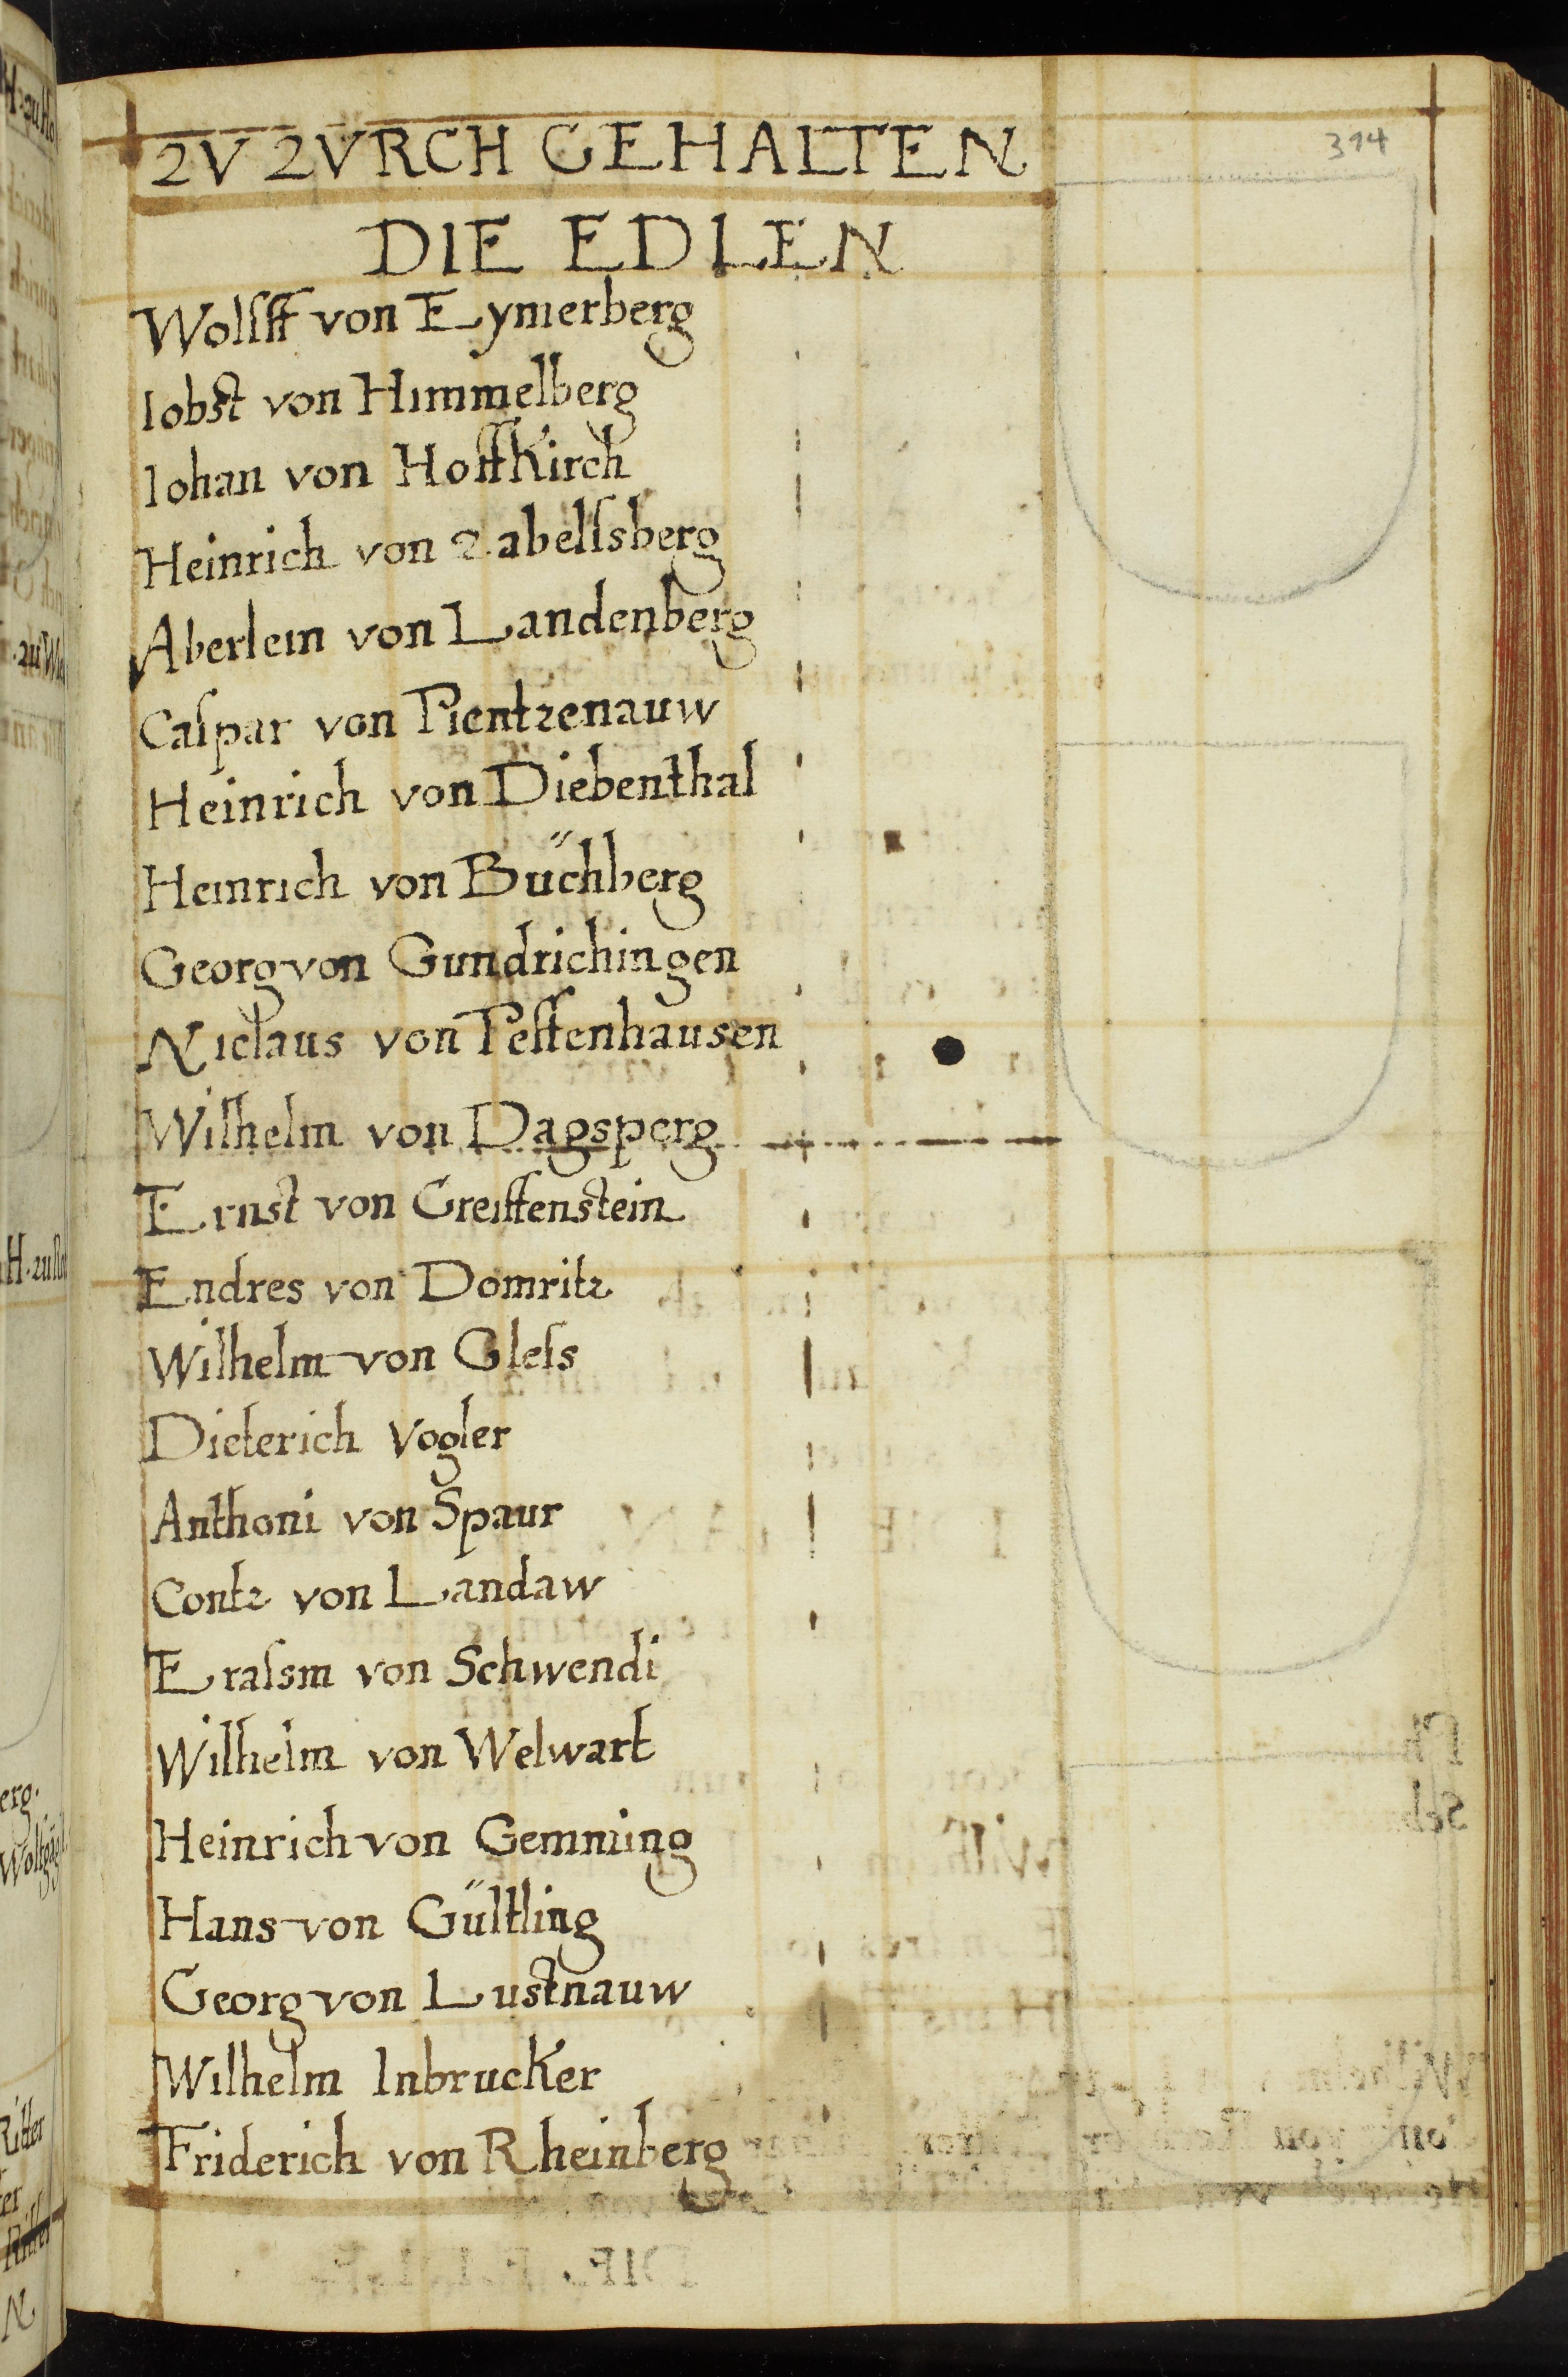 394
ZV ZVRCH GEHALTEN
DIE EDLEN
Wolfff von Eymerberg
Iobst von Himmelberg
Iohan von Hoffkirch
Heinrich von Zabelſsberg
Aberlein von Landenberg
Caſpar von Pientzenauw
Heinrich von Diebenthal
Heinrich von Büchberg
Georg von Gundrichingen
Niclaus von Peffenhausen
Wilhelm von Dagsperg
Ernst von Greiffenstein
Endres von Domritz
Wilhelm von Gleſs
Dieterich Vogler
Anthoni von Spaur
Contz von Landaw
Eraſsm von Schwendi
Wilhelm von Welwart
Heinrich von Gemming
Hans von Gültling
Georg von Lustnauw
Wilhelm Inbrucker
Friderich von Rheinberg